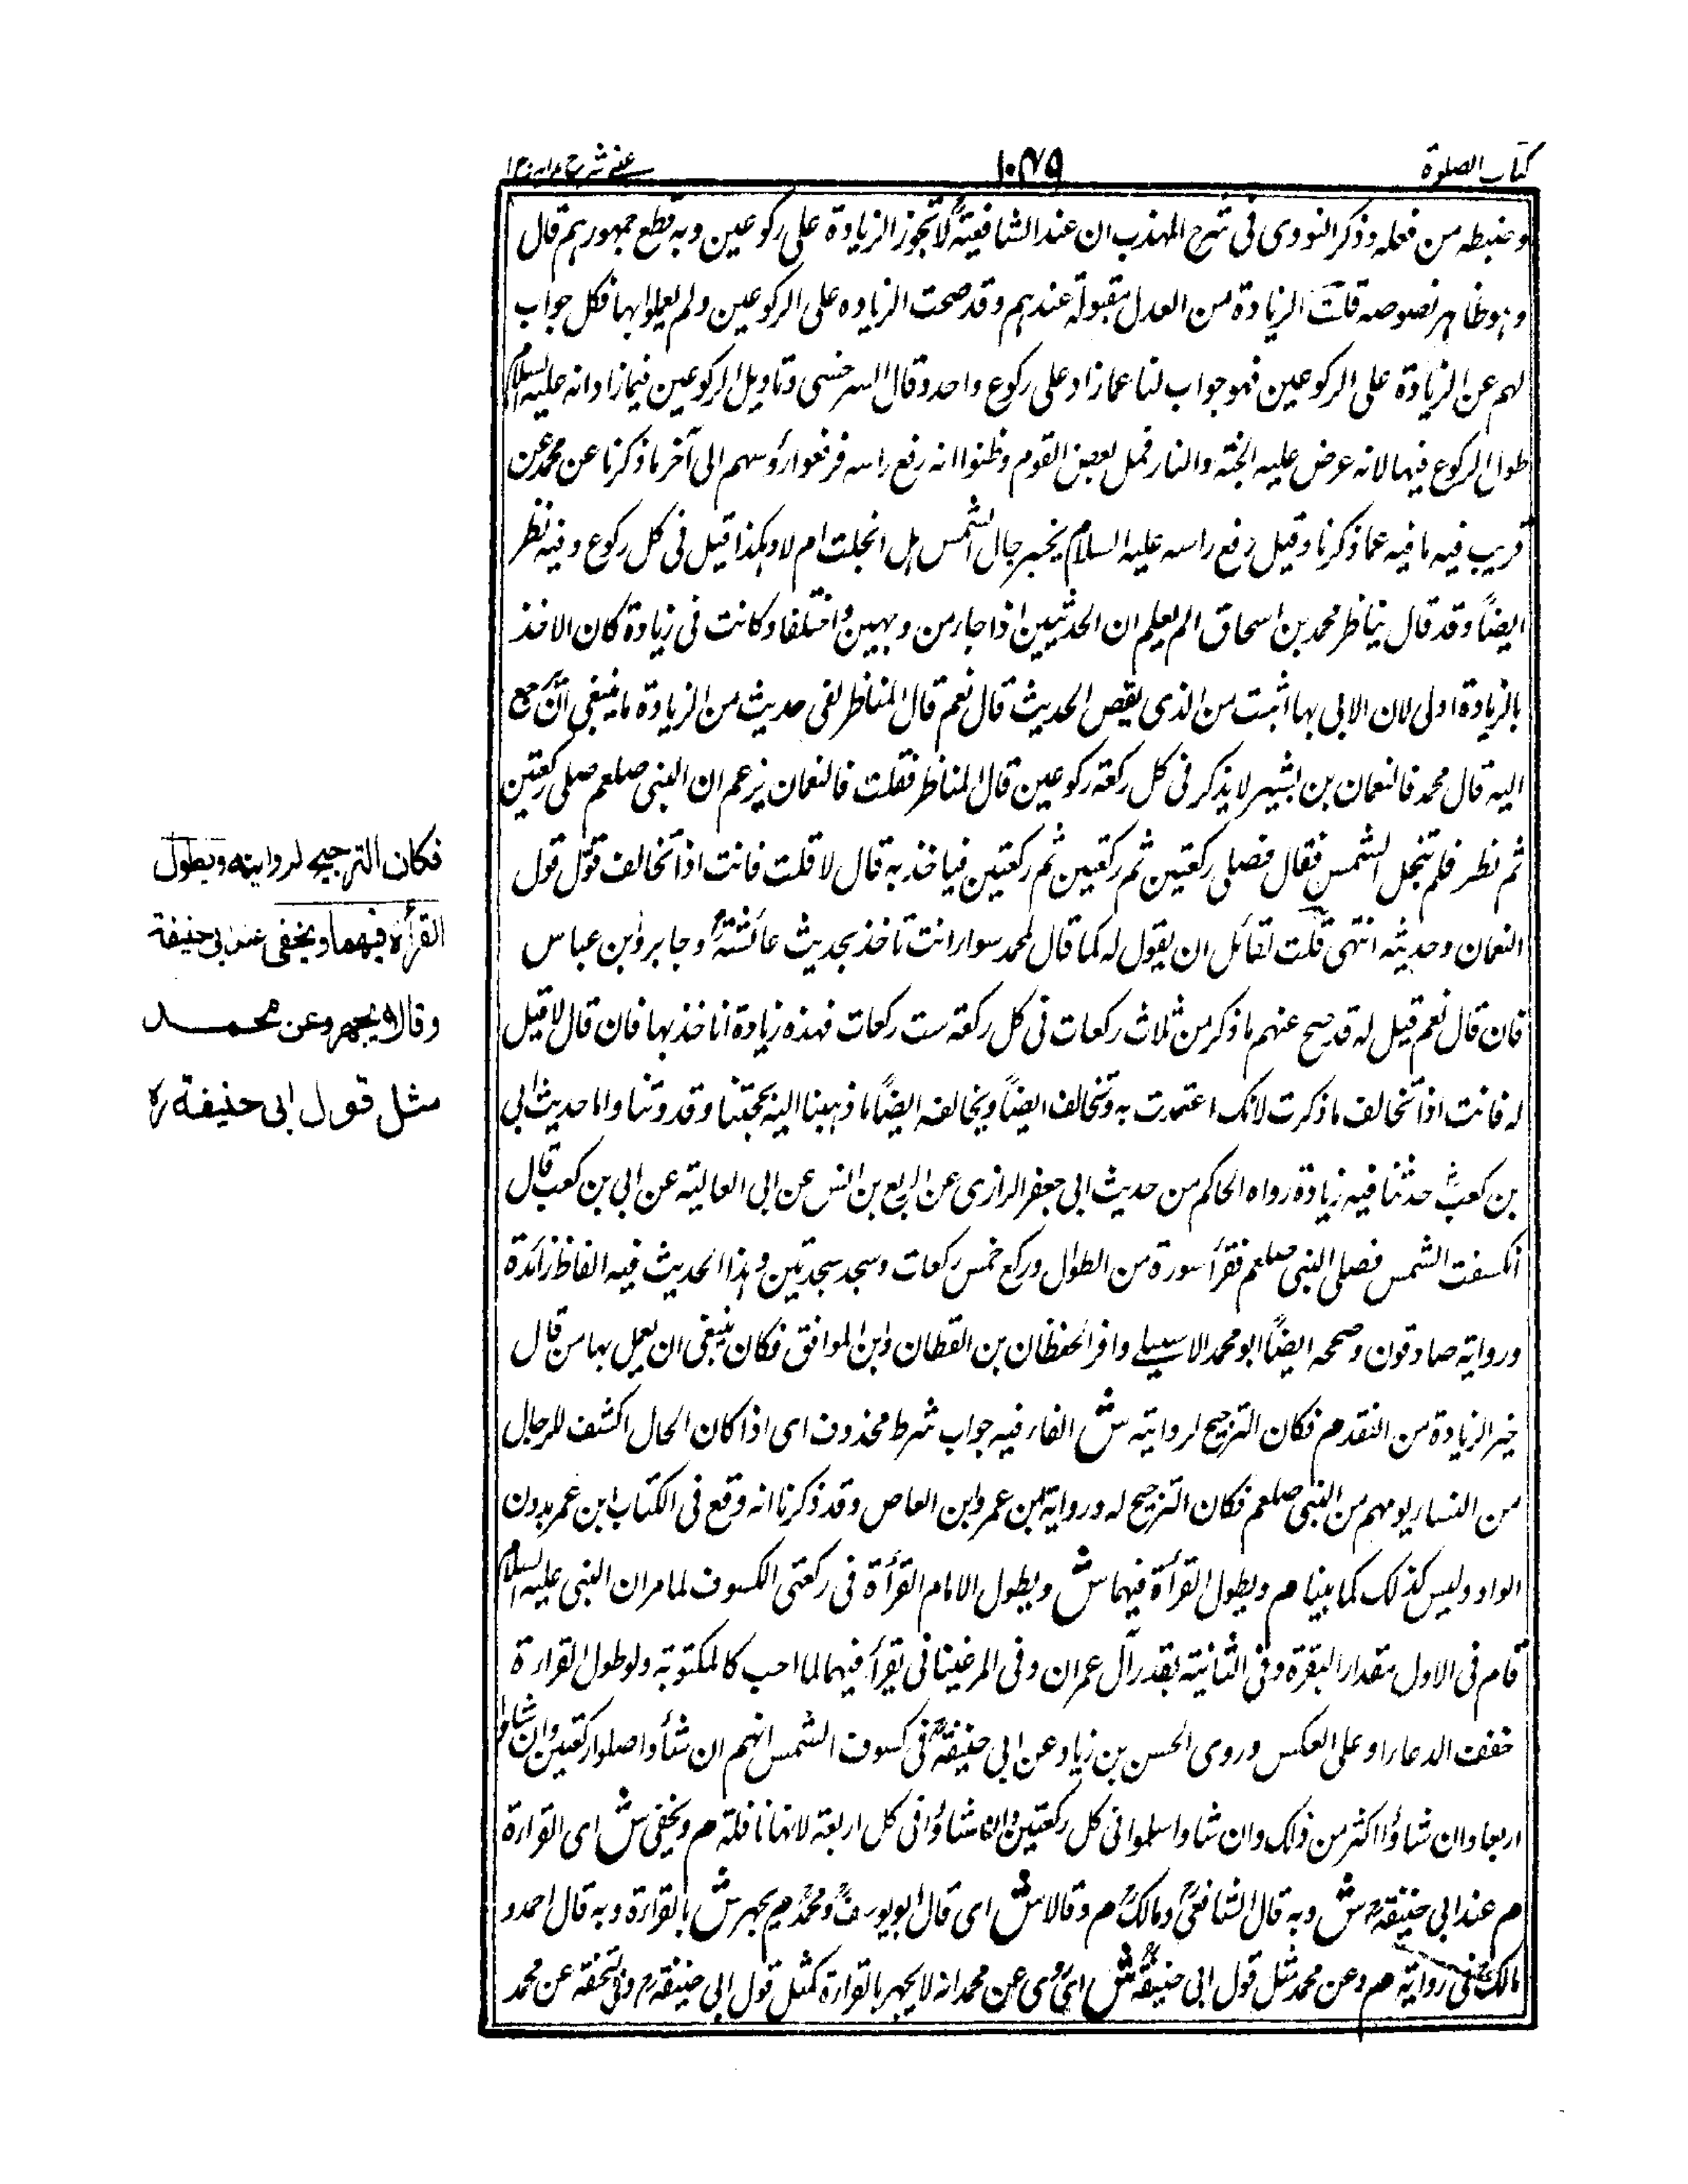 كتاب الصلوة
١٠٣٩
عيني شرح هدايه ج ١
وضبطه من فعله وذكر النووى فى شرح المهذب ان عند الشافعيةؒ لا تجوز الزيادة على ركوعين وبه قطع جمهورهم قال
وهو ظاهر نصوصه قلت الزيادة من العدل مقبولة عندهم وقد صحت الزياده على الركوعين ولم يعملوا بها فكل جواب
لهم عن الزيادة على الركوعين فهو جواب لنا عما زاد على ركوع واحد وقال السرخسى وتاويل الركوعين فيما زاد انه عليه السلام
طول الركوع فيها لانه عرض عليه الجنة والنار فمل بعض القوم وظنوا انه رفع راسه فرفعوا رؤسهم الى آخر ما ذكرنا عن محمد عن
قريب فيه ما فيه عما ذكرنا وقيل رفع راسه عليه السلام يختبر حال الشمس هل انجلت ام لا وهكذا قيل فى كل ركوع وفيه نظر
ايضاً وقد قال يناظر محمد بن اسحاق الم يعلم ان الحديثين اذا جاء من وجهين واختلفا وكانت فى زيادة كان الاخذ
بالزيادة اولى لان الاتى بها اثبت من الذى نقص الحديث قال نعم قال المناظر لفى حديث من الزيادة ما ينبغى ان ترجع
اليه قال محمد فالنعمان بن بشير لا يذكر فى كل ركعة ركوعين قال المناظر فقلت فالنعمان يزعم ان النبى صلعم صلى ركعتين
ثم نظر فلم تنجل الشمس فقال فصلى ركعتين ثم ركعتين ثم ركعتين فياخذ به قال لا قلت فانت اذا تخالف قول قول
النعمان وحديثه انتهى قلت لقائل ان يقول له كما قال لمحمد سوار انت تاخذ بحديث عائشةؓ وجابر وابن عباس
فان قال نعم قيل له قد صح عنهم ما ذكر من ثلاث ركعات فى كل ركعة ست ركعات فهذه زيادة انا خذ بها فان قال لا قيل
له فانت اذا تخالف ما ذكرت لانك اعتمدت به وتخالف ايضاً ويخالف ايضاً ما ذهبنا اليه بحجتنا وقدوتنا واما حديث ابى
بن كعبؓ حدثنا فيه زيادة رواه الحاكم من حديث ابى جعفر الرازى عن الربيع بن انس عن ابى العالية عن ابى بن كعب قال
انكسفت الشمس فصلى النبى صلعم فقرأ سورة من الطول وركع خمس ركعات وسجد سجدتين وهذا الحديث فيه الفاظ زائدة
ورواية صادقون وصححه ايضاً ابو محمد الاسبيلے وافر الحفظان بن القطان وابن الموافق فكان ينبغى ان يعمل بها من قال
خبر الزيادة من النقدم فكان الترجيح لروايته ش الفاء فيه جواب شرط محذوف اى اذا كان الحال اكشف للرجال
من النساء يومهم من النبى صلعم فكان الترجيح له ورواية ابن عمر وابن العاص وقد ذكرنا انه وقع فى الكتاب ابن عمر بدون
الواو وليس كذلك كما بينا م ويطول القرأة فيهما ش ويطول الامام القرأة فى ركعتى الكسوف لما مر ان النبى عليه السلام
قام فى الاول مقدار البقرة وفى الثانية بقدر آل عمران وفى المرغينانى يقرأ فيهما لما احب كالمكتوبة ولو طول القراءة
خفف الدعاء او على العكس وروى الحسن بن زياد عن ابى حنيفةؒ فى كسوف الشمس انهم ان شأوا صلوا ركعتين وان شاوا
اربعا وان شاؤا اكثر من ذلك وان شاوا سلموا فى كل ركعتين وان شاؤا فى كل اربعة لانها نافلة م ويخفى ش اى القراءة
م عند ابى حنيفةؒ ش وبه قال الشافعىؒ ومالكؒ م وقالا ش اى قال ابو يوسفؒ ومحمدؒ م يجهر ش بالقراءة وبه قال احمد و
مالكؒ فى رواية م وعن محمد مثل قول ابى حنيفةؒ ش اى روى عن محمد انه لا يجهر بالقراءة كمثل قول ابى حنيفةؒ وفى التحفة عن محمد
فكان الترجيح لروايته ويطول
القرأة فيهما ويخفى عند ابى حنيفة
وقالا يجهر وعن محمد
مثل قول ابى حنيفة رح